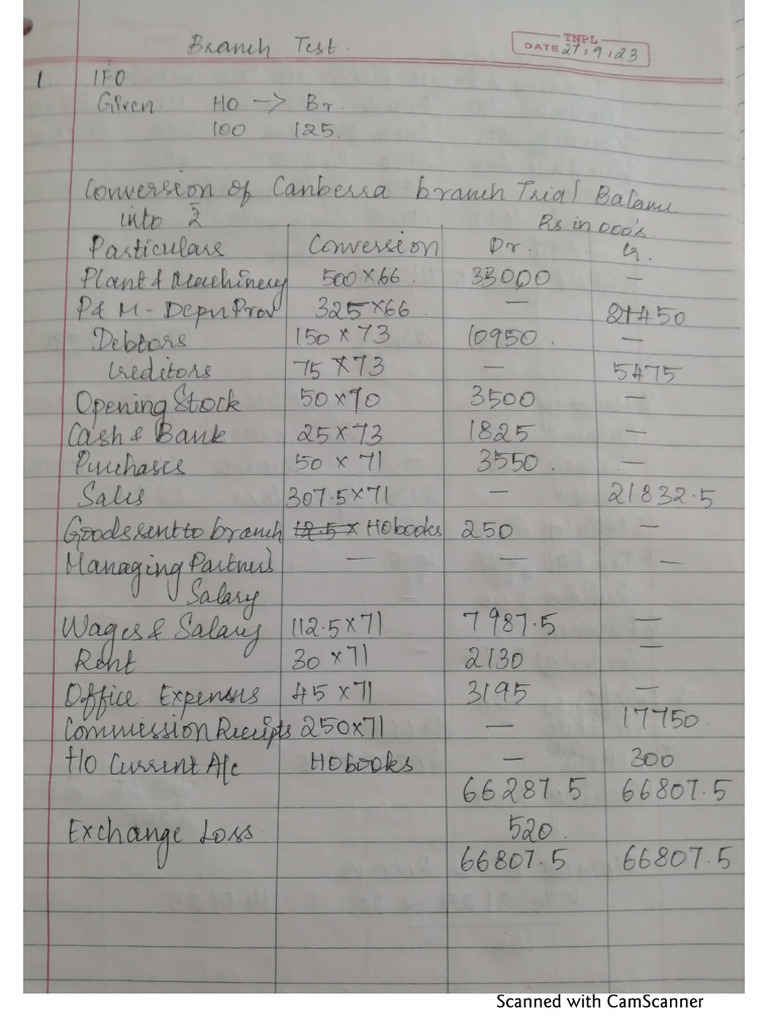 Branch Test.
TNPL
DATE 27,9,23
1 IFO
Given HO -> Br.
100 125.
Conversion of Canberra branch Trial Balance
into ₹ Rs in 000's
Particulars Conversion Dr. Cr.
Plant & Machinery 500 x 66 33000 —
P & M - Depn Prov 325 x 66 — 21450
Debtors 150 x 73 10950. —
Creditors 75 x 73 — 5475
Opening Stock 50 x 70 3500 —
Cash & Bank 25 x 73 1825 —
Purchases 50 x 71 3550. —
Sales 307.5 x 71 — 21832.5
Goods sent to branch 12.5 x HO books 250 —
Managing Partner's — — —
Salary
Wages & Salary 112.5 x 71 7987.5 —
Rent 30 x 71 2130 —
Office Expenses 45 x 71 3195 —
Commission Receipts 250 x 71 — 17750.
HO Current A/c HO books — 300
66287.5 66807.5
Exchange Loss 520.
66807.5 66807.5
Scanned with CamScanner